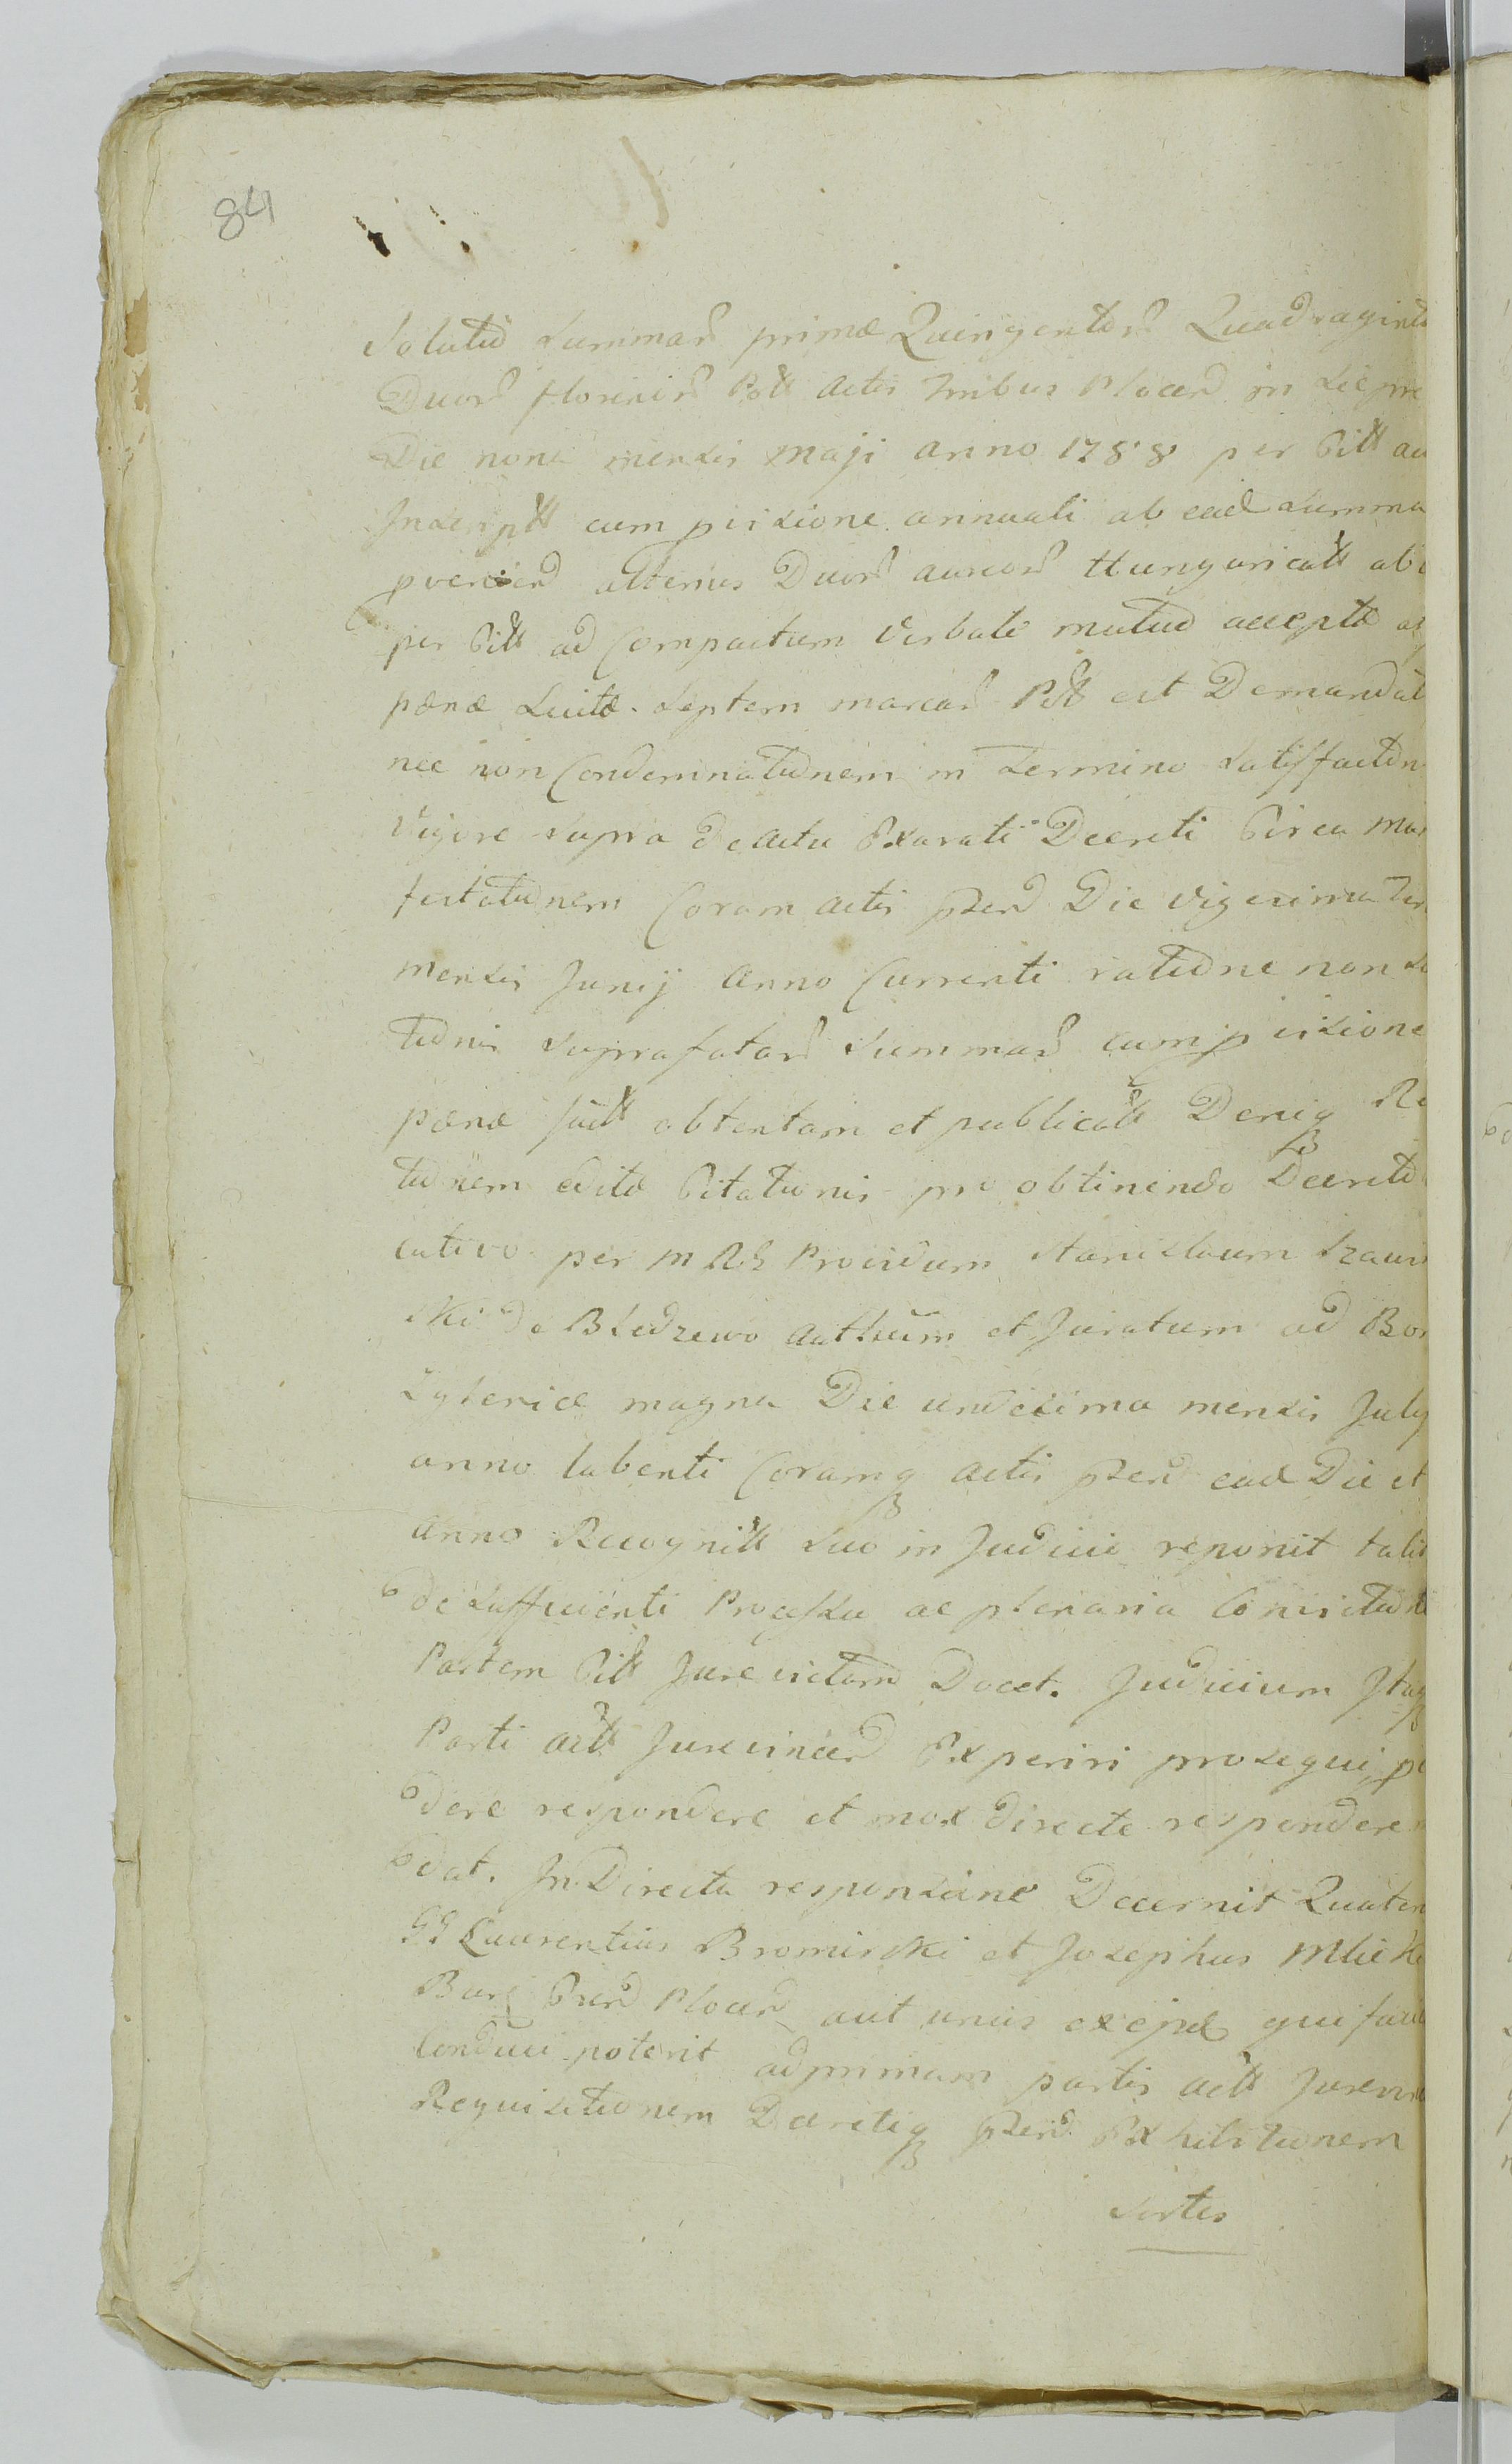 84
Solutio Summar primæ Quingentor Quadraginta
Duor florenor Poll actis Tribus Plocen in Sierpc
Die nona mensis Maji anno 1788 per Citt
Inscriptt cum provisione annuali ab ead summa
provenien alterius Duor aureor Hungaricall
per Citt ad Compactum Verbale mutuo acceptæ
pœnæ Lucitæ Septem marcar Poll est Demandat
nec non Condemnationem in Termino Satisfaction
Vigore supra de actu Exarati Decreti Circa
festationem Coram actis pzen Die Vigesima
mensis Junij Anno Currenti ratione non
tionis suprafatar Summar cum provisione
pœnæ factt obtentam et publicatt Deniq
tionem editæ Citationis pro obtinendo Decreto
cutivo per M RG Providum Stanislaum
ski de Bledzewo Authum et Juratum ad Bo
magna Die undecima mensis July
anno labenti Coramq actis pzen ead Die et
anno Recognitt suo in Judicii reponit
de sufficienti Processu ac plenaria Convictione
Partem Citt Jurevictam Docet. Judicium Itaq
Parti actt Jurevincen Experiri prosequi
dere respondere et mox directe respondere
dat. In Directa responsione Decernit Quaten
GG Laurentius Bromirski et Josephus
Burg Pzen Plocen aut unus ex ejsd qui
Conduci poterit ad primam partis actt Jurevin
Requisitionem Decretiq pzen Exhibitionem
Sortes